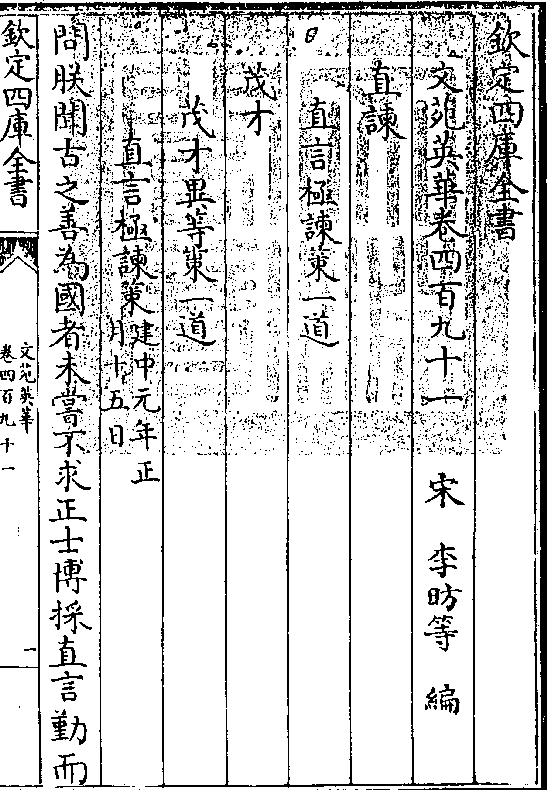 欽定四庫全書
文苑英華卷四百九十一
宋 李昉等 編
直諫
直言極諫策一道
茂才
茂才異等策一道
直言極諫策建中元年正
月十五日
問朕聞古之善為國者未嘗不求正士博採直言勤而
欽定四庫全書
文苑英華
卷四百九十一
一